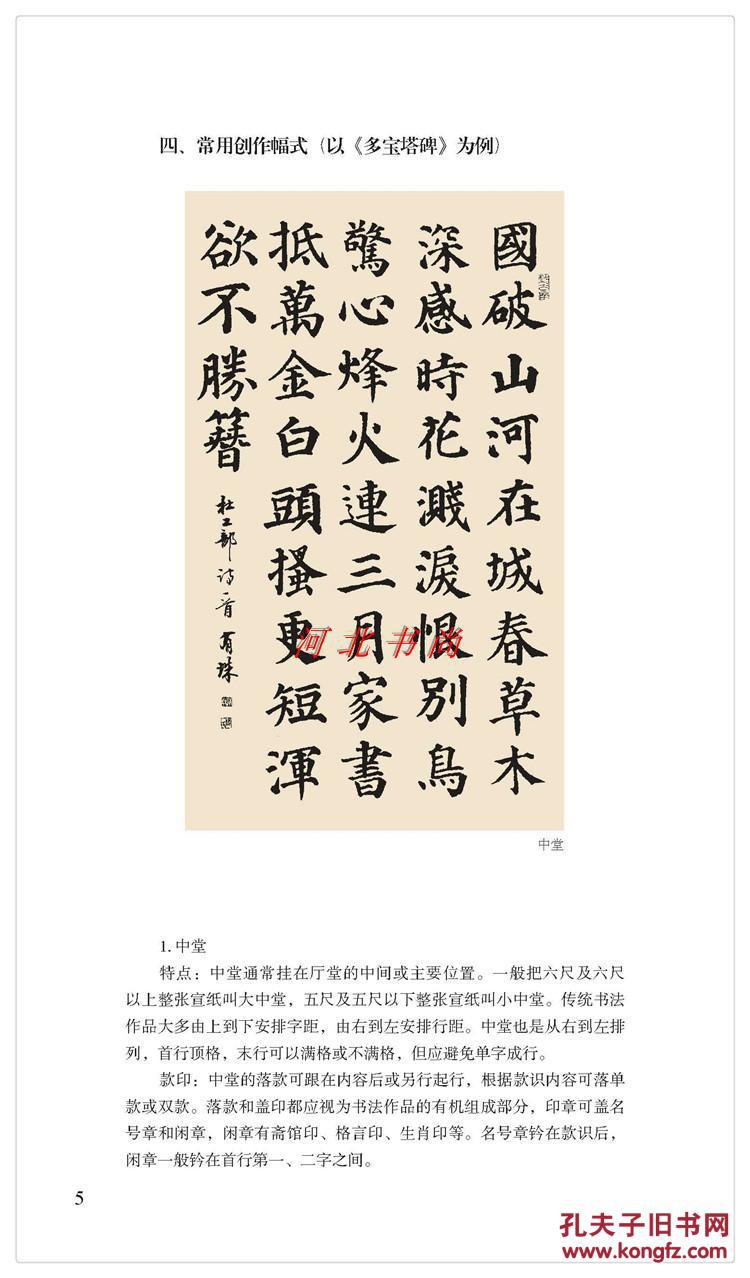 四、常用创作幅式（以《多宝塔碑》为例）
國破山河在城春草木
深感時花濺淚恨別鳥
驚心烽火連三月家書
抵萬金白頭搔更短渾
欲不勝簪
杜工部诗一首 有珠
河北书尚
中堂
1. 中堂
特点：中堂通常挂在厅堂的中间或主要位置。一般把六尺及六尺
以上整张宣纸叫大中堂，五尺及五尺以下整张宣纸叫小中堂。传统书法
作品大多由上到下安排字距，由右到左安排行距。中堂也是从右到左排
列，首行顶格，末行可以满格或不满格，但应避免单字成行。
款印：中堂的落款可跟在内容后或另行起行，根据款识内容可落单
款或双款。落款和盖印都应视为书法作品的有机组成部分，印章可盖名
号章和闲章，闲章有斋馆印、格言印、生肖印等。名号章钤在款识后，
闲章一般钤在首行第一、二字之间。
5
孔夫子旧书网
www.kongfz.com